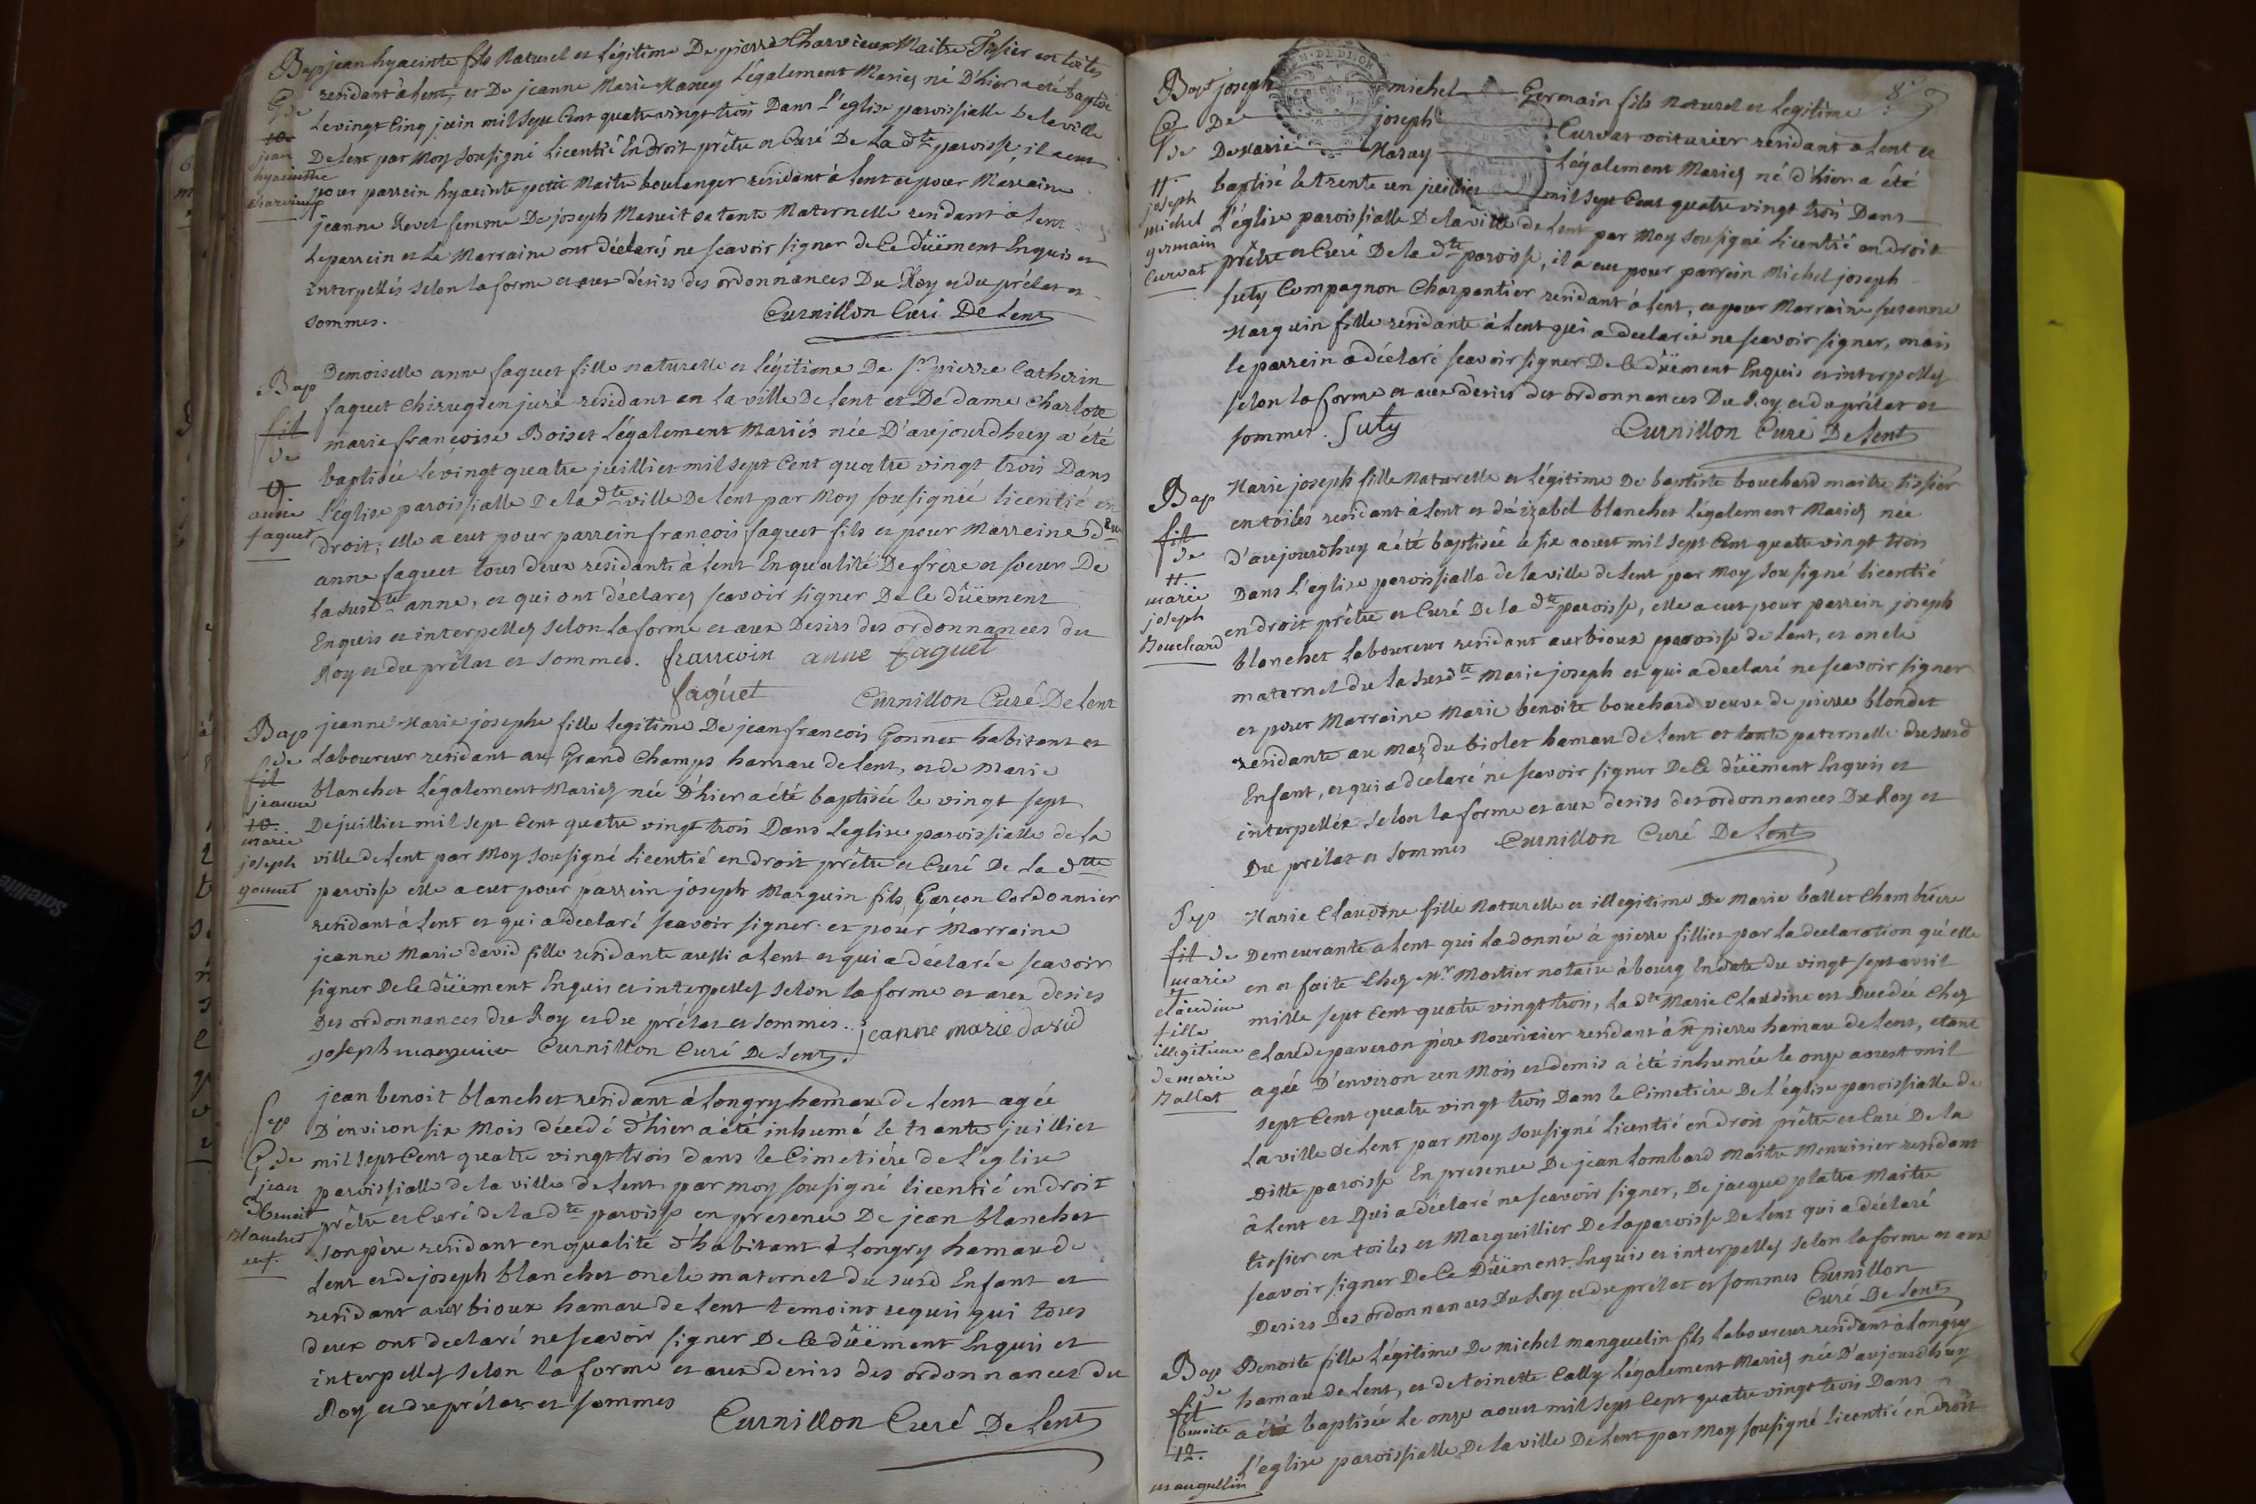 Bap jean hyacinte fils Naturel et légitime De pierre Charvieux Maitre Tissier en toiles
residant à Lent, et De jeanne Marie Marey Légalement Mariés né D'hier a été baptisé
Le vingt Cinq juin mil sept Cent quatre vingt trois Dans L'eglise paroissialle De la ville
De Lent par Moy sousigné Licentié En droit prêtre et Curé De La dte paroisse, il a eut
pour parrein hyacinte petit Maitre boulanger residant à Lent et pour Marraine
jeanne Revel femme De joseph Manuit sa tante Maternelle residant à Lent
Le parrein et La Marraine ont déclarés ne scavoir signer de Ce düement Enquis et
interpellés selon la forme et aux désirs des ordonnances Du Roy et du prélat et
sommes.
Curnillon Curé De Lent
de
10
jean
hyacinthe
charvieux
Bap
fil
de
9
anne
faguet
Demoiselle anne faguet fille naturelle et légitime De sr pierre Catherin
faguet Chirugien juré residant en la ville De Lent et De dame Charlote
marie françoise Boiset Légalement Mariés née D'aujourdhuy a été
baptisée Le vingt quatre juillet mil sept Cent quatre vingt trois Dans
L'église paroissialle De la dte ville De Lent par Moy sousigné licentié en
droit; elle a eut pour parrein françois faguet fils et pour Marreine dlle
anne faguet tous deux residants à Lent En qualité De frère et soeur De
la susdte anne, et qui ont déclarez scavoir signer De Ce düement
Enquis et interpellez selon la forme et aux Desirs des ordonnances du
Roy et du prélat et sommes. francoin anne faguet
faguet Curnillon Curé De Lent
Bap
de
fil
jeanne
10.
marie
joseph
gonnet
jeanne Marie josephe fille legitime De jean françois Gonnet habitant et
Laboureur residant au Grand Champs hamau de Lent, et de Marie
blanchet Légalement Mariez née D'hier a été baptisée le vingt sept
De juillet mil sept Cent quatre vingt trois Dans Leglise paroissialle de la
ville de Lent par Moy sousigné Licentié en droit prêtre et Curé De La dtte
paroisse elle a eut pour parrein joseph Marguin fils, Garçon Cordonnier
residant à Lent et qui a declaré scavoir signer. et pour Marraine
jeanne Marie david fille residante aussi a Lent et qui a déclarée scavoir
signer De Ce düement Enquis et interpellez selon la forme et aux desirs
Des ordonnances du Roy et du prélat et sommes. jeanne marie david
joseph marguin Curnillon Curé De Lent
Sep
de
jean
benoit
blanchet
jean benoit blanchet residant à Longry hamau de Lent agée
D'environ six Mois décedé d'hier a été inhumé le trente juillet
mil sept Cent quatre vingt trois dans le Cimetière de L'eglise
paroissialle de la ville de Lent par moy sousigné licentié en droit
prêtre et Curé de la dte paroisse en presence De jean blanchet
son père residant en qualité d'habitant à Longry hamau de
Lent et de joseph blanchet oncle maternel du susd Enfant et
residant aux bioux hamau de Lent temoins requis qui tous
deux ont declaré ne scavoir signer De Ce düement Enquis et
interpellez selon la forme et aux desirs des ordonnances du
Roy et du prélat et sommes
Curnillon Curé De Lent
Bapt joseph michel Germain fils naturel et Legitime
De joseph Curvat voiturier residant a Lent et
De Marie Maray Légalement Mariez né d'hier a été
baptisé le trente un juillet mil sept Cent quatre vingt trois Dans
L'église paroissialle De la ville de Lent par Moy sousigné Licentié en droit
prêtre et Curé De la dte paroisse, il a eut pour parrein Michel joseph
futy Compagnon Charpentier residant à Lent, et pour Marraine susanne
Marguin fille residante à Lent qui a declarée ne scavoir signer, mais
le parrein a déclaré scavoir signer De Ce düement Enquis et interpellez
selon la forme et aux desirs des ordonnances Du Roy et du prélat et
sommes. futy Curnillon Curé De Lent
de
11
joseph
michel
germain
Curvat
Bap
fil
de
11
marie
joseph
Bouchard
Marie joseph fille Naturelle et Légitime De baptiste bouchard maitre tissier
en toiles residant à Lent et d'izabel blanchet Légalement Mariez née
D'aujourdhuy a été baptisée le six aoust mil sept Cent quatre vingt trois
Dans L'eglise paroissialle de la ville de Lent par Moy sousigné licentié
en droit prêtre et Curé De la dte paroisse, elle a eut pour parrein joseph
blanchet Laboureur residant aux bioux paroisse de Lent, et oncle
maternel du la susdte Marie joseph et qui a declaré ne scavoir signer
et pour Marraine Marie benoite bouchard veuve de pierre blondet
residante au Maz du biolet hamau de Lent et tante paternelle du susd
Enfant, et qui a declaré ne scavoir signer De Ce düement Enquis et
interpellez selon la forme et aux desirs des ordonnances Du Roy et
Du prélat et sommes Curnillon Curé De Lent
Sep
fil de
marie
claudine
fille
illégitime
de marie
Ballet
Marie Claudine fille Naturelle et illegitime De Marie ballet Chambrière
Demeurante a Lent qui La donnée à pierre fillier par La declaration qu'elle
en et faite Chez Mr Mortier notaire à bourg En date du vingt sept avril
mille sept Cent quatre vingt trois, La dte Marie Claudine est Decedée Chez
Claude paveron père Nourricier residant à st pierre hamau de Lent, etant
agée D'environ un Mois et demis a été inhumée le onze aoust mil
sept Cent quatre vingt trois Dans le Cimetière De L'église paroissialle de
La ville De Lent par Moy sousigné Licentié en droit prêtre et Curé De la
Ditte paroisse En presence De jean Lombard Maitre Menuisier residant
à Lent et Qui a déclaré ne scavoir signer, De jacque platre Maitre
tissier en toiles et Marguillier De la paroisse De Lent qui a déclaré
scavoir signer De Ce Düement Enquis et interpellez selon la forme et aux
Desirs Des ordonnances Du Roy et du prélat et sommes Curnillon
Curé De Lent
Bap
de
fil
benoite
12.
manguellin
Benoite fille Légitime De Michel manguelin fils Laboureur residant à Longry
hamau de Lent, et de toinette Cally Légalement Mariez née D'aujourdhuy
a été baptisée Le onze aoust mil sept Cept quatre vingt trois Dans
L'eglise paroissialle De la ville De Lent par Moy sousigné licentié en droit